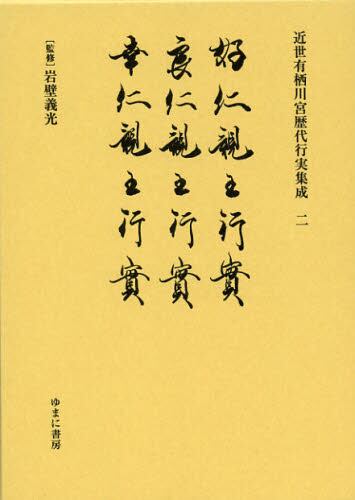 近世有栖川宮歴代行実集成 二
好仁親王行實
良仁親王行實
幸仁親王行實
［監修］岩壁義光
ゆまに書房